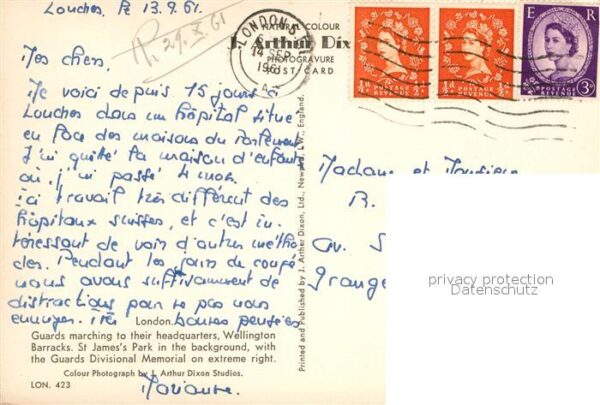 Londres, le 13.9.61.
R. 29.X.61
NATURAL COLOUR
J. Arthur Dix
PHOTOGRAVURE
POST CARD
LONDON S.
14 SEP
1961
E R
POSTAGE REVENUE
½d ½d
POSTAGE REVENUE
½d ½d
POSTAGE REVENUE
3D
Mes chers,
Me voici depuis 15 jours à
Londres dans un hôpital situé
en face des maisons du Parlement
J'ai quitté la maison d'enfants
où j'ai passé 4 mois.
Ici travail très différent des
hôpitaux suisses, et c'est in-
téressant de voir d'autres métho
des. Pendant les jours de congé
nous avons suffisamment de
distractions pour ne pas nous
ennuyer. Mes bonnes pensées
Marianne.
Madame et Monsieur
R.
av. S
Grange
privacy protection
Datenschutz
Printed and Published by J. Arthur Dixon, Ltd., Newport, I.W., England.
London.
Guards marching to their headquarters, Wellington
Barracks. St James's Park in the background, with
the Guards Divisional Memorial on extreme right.
Colour Photograph by J. Arthur Dixon Studios.
LON. 423